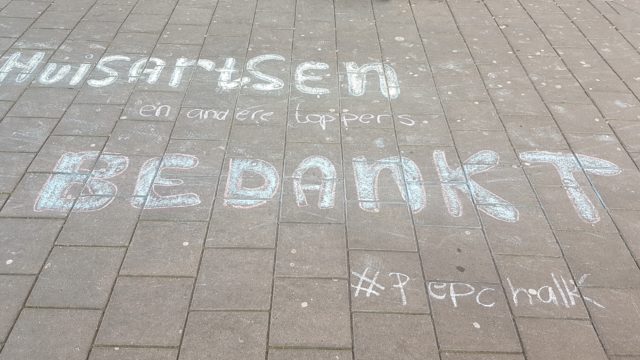 Huisartsen
en andere toppers.
BEDANKT
#Pepchalk